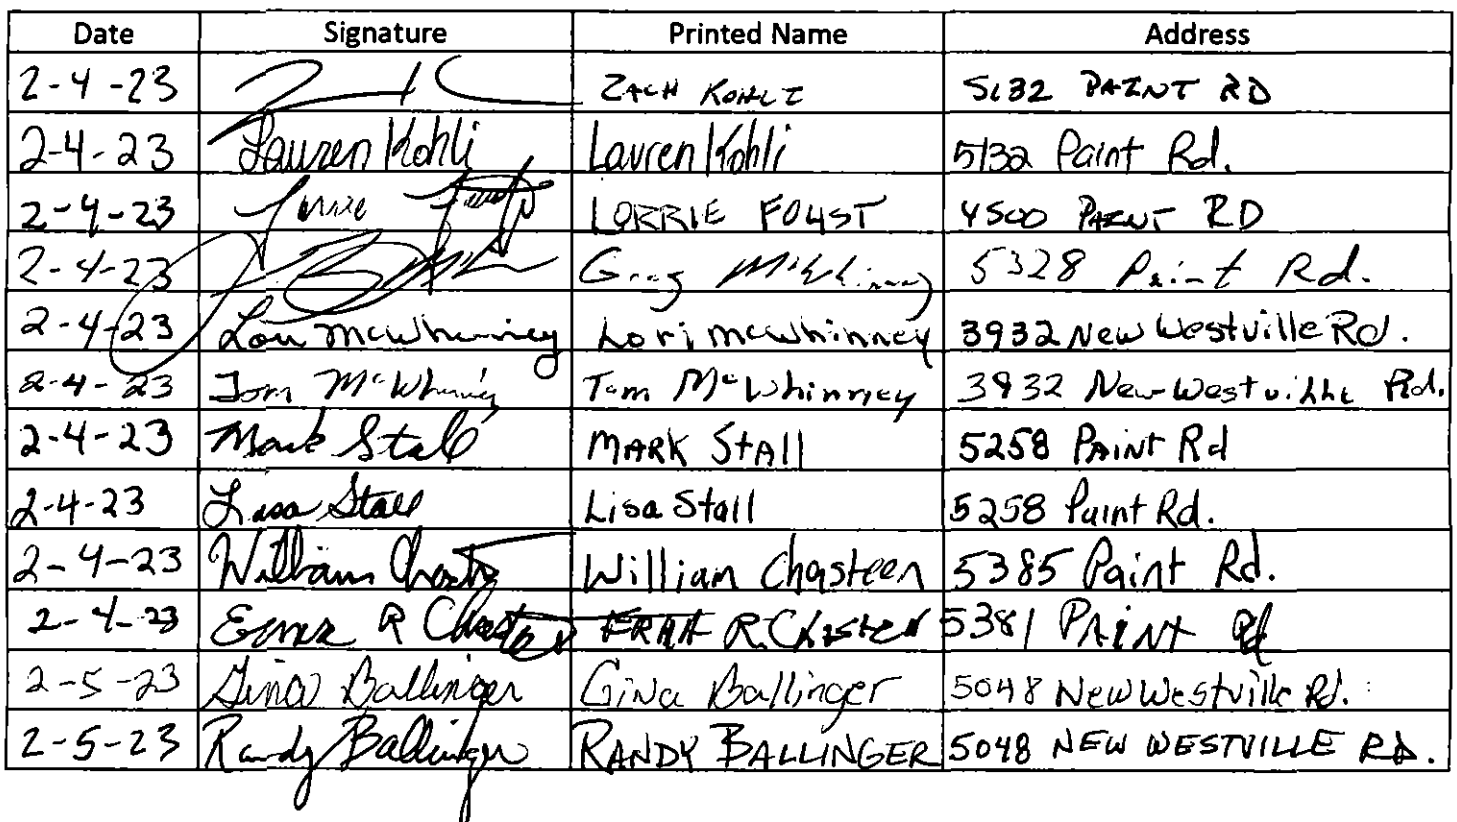 Date Signature Printed Name Address
2-4-23 ZACH KOHLI 5132 PAINT RD
2-4-23 Lauren Kohli Lauren Kohli 5132 Paint Rd.
2-4-23 LORRIE FOUST 4500 PAINT RD
2-4-23 Greg McWhinney 5328 Paint Rd.
2-4-23 Lori McWhinney Lori McWhinney 3932 New Westville Rd.
2-4-23 Tom McWhinney Tom McWhinney 3932 New Westville Rd.
2-4-23 Mark Stall MARK StAll 5258 PAINt Rd
2-4-23 Lisa Stall Lisa Stall 5258 Paint Rd.
2-4-23 William Chasteen William Chasteen 5385 Paint Rd.
2-4-23 R Chasteen R. Chasteen 5381 PAINt Rd
2-5-23 Gina Ballinger Gina Ballinger 5048 New Westville Rd.
2-5-23 Randy Ballinger RANDY BALLINGER 5048 NEW WESTVILLE RD.